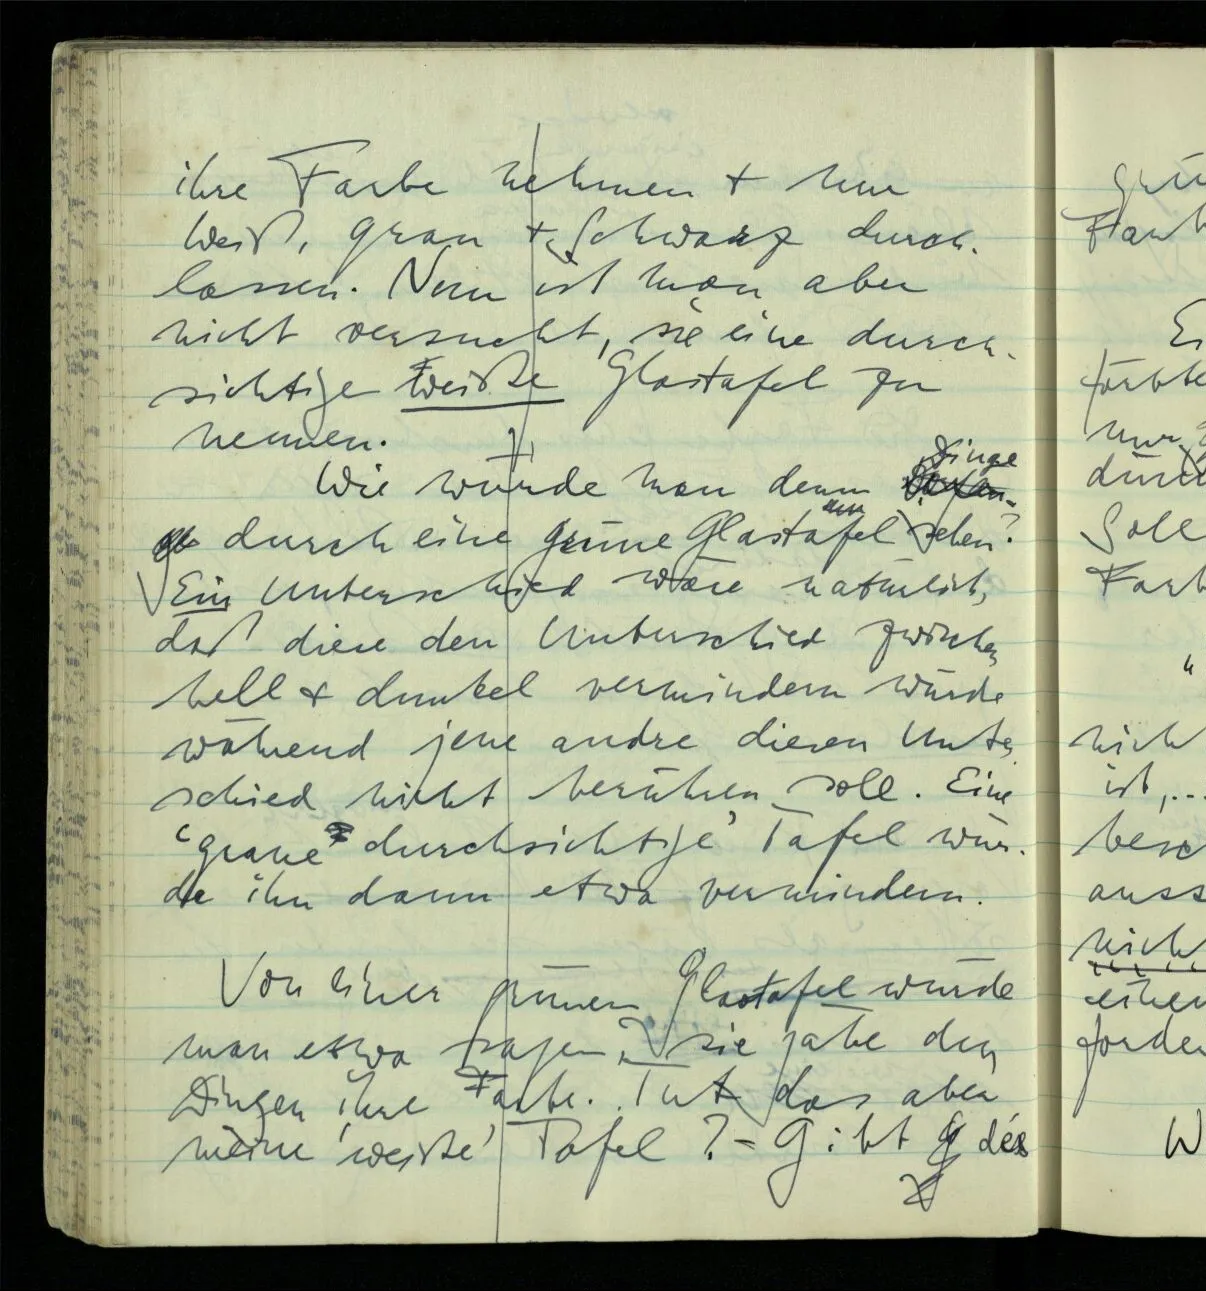 ihre Farbe nehmen + nur
Weiß, grau + Schwarz durch-
lassen. Nun ist man aber
nicht versucht, sie eine durch-
sichtige weiße Glastafel zu
nennen.
Dinge
Wie würde man denn
durch eine grüne Glastafel sehen?
Ein Unterschied wäre natürlich,
daß diese den Unterschied zwischen
hell + dunkel vermindern würde
während jene andre diesen Unter
schied nicht berühren soll. Eine
'graue durchsichtige' Tafel wür-
de ihn dann etwa vermindern.
Von einer grünen Glastafel würde
man etwa sagen, sie gäbe den
Dingen ihre Farbe. Tut das aber
meine 'weiße' Tafel? – Gibt
grü
Farb
färbte
nur
durch
Soll
Farb
"
nich
ist,...
besch
auss
nich
einen
forder
W